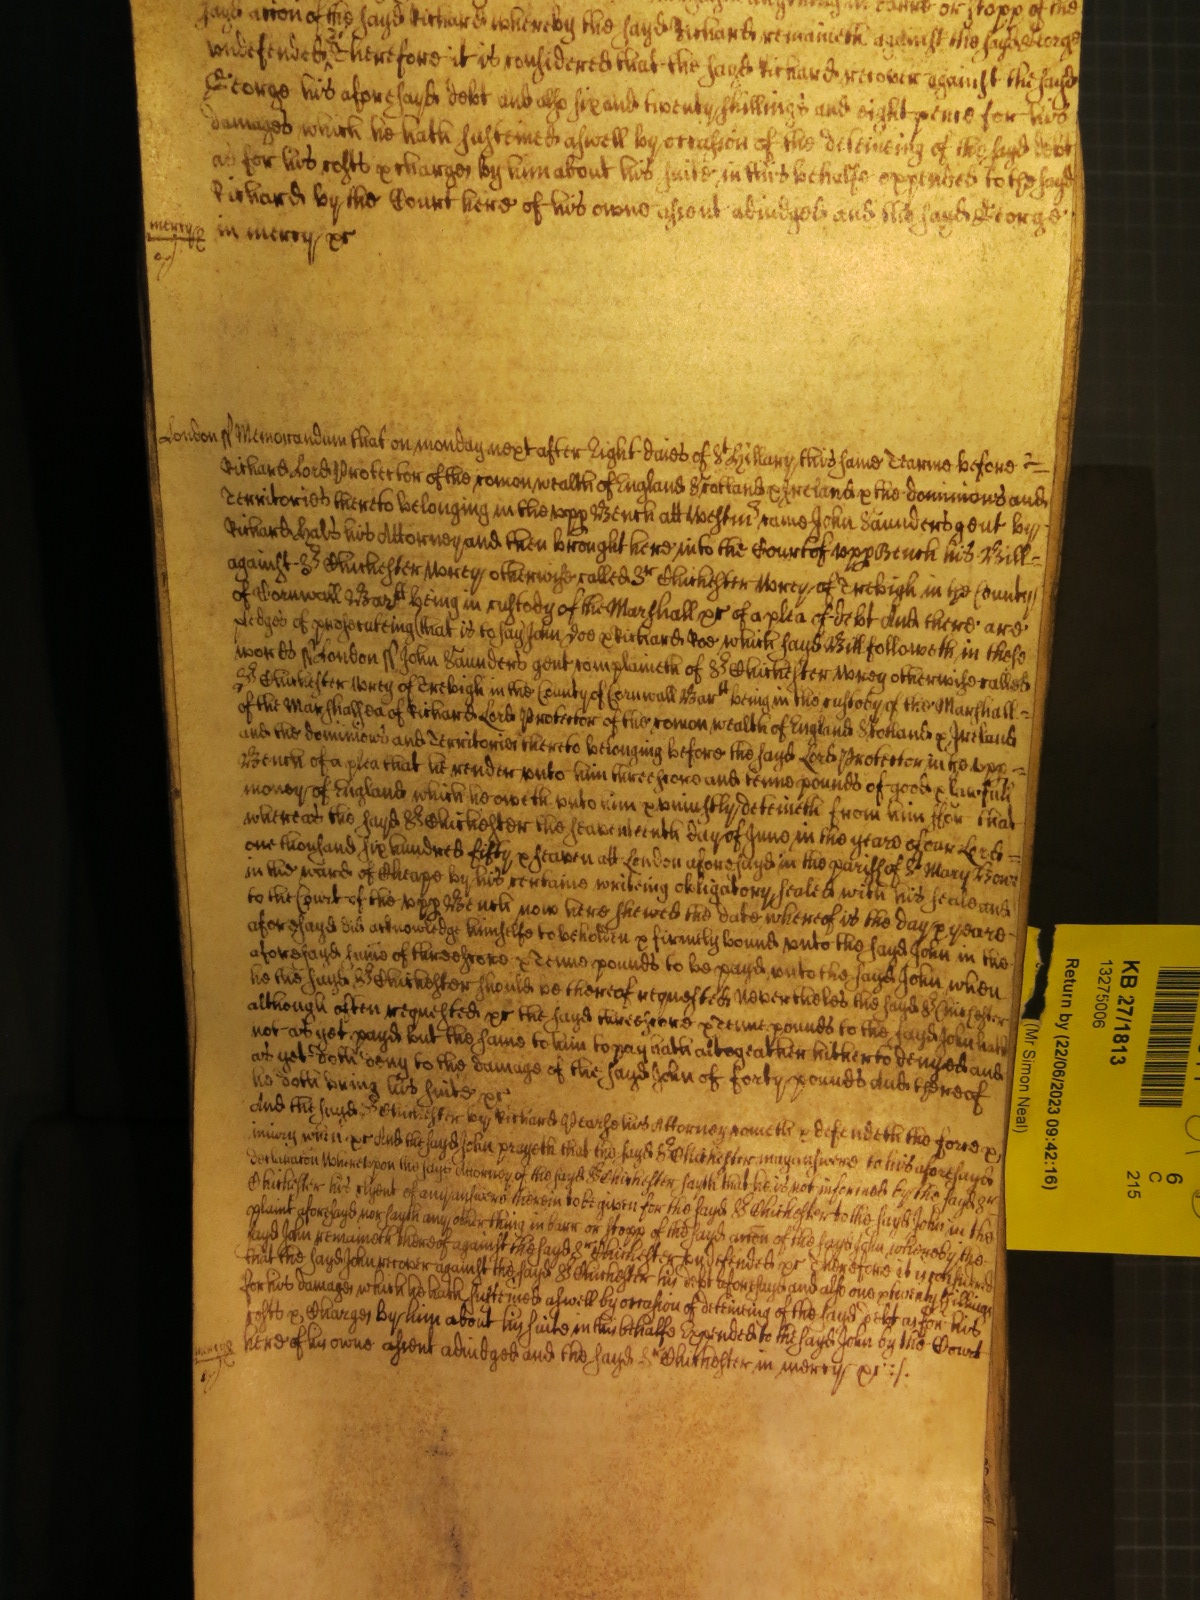 in barre or stopp of the
sayd accion of the sayd Richard whereby the sayd Richard remaineth against the sayd George
undefended Therefore it is considered that the sayd Richard recover against the sayd
George his aforesayd debt and also six and twenty shillings and eight pence for his
damages which he hath susteined aswell by occasion of the deteineing of the sayd debt
as for his costs & charges by him about his suite in this behalfe expended to the sayd
Richard by the Court here of his owne assent adiudged and the sayd George
mercy in mercy &c
London ss Memorandum that on monday next after Eight daies of St Hillary this same Tearme before
Richard Lord Protector of the comon wealth of England Scotland & Ireland & the dominions and
Territories thereto belonging in the upp Bench att Westm came John Saunders gent by
Richard Hals his Attorney and then brought here into the Court of upp Bench his Bill
against Sr Chichester Wrey otherwise called Sr Chichester Wrey of Trebigh in the County
of Cornwall Bartt being in custody of the Marshall &c of a plea of debt And there are
pledges of prosecuteing that is to say John Doe & Richard Roe which sayd Bill followeth in these
words ss London ss John Saunders gent complaineth of Sr Chichester Wrey otherwise called
Sr Chichester Wrey of Trebigh in the County of Cornwall Bartt being in the custody of the Marshall
of the Marshallsea of Richard Lord Protector of the comon wealth of England Scotland & Ireland
and the dominions and Territories thereto belonging before the sayd Lord Protector in the upp
Bench of a plea that he render unto him threescore and tenne pounds of good & lawfull
money of England which he oweth unto him & uniustly deteineth from him ffor that
whereas the sayd Sr Chichester the seaventeenth day of June in the yeare of our Lord
one thousand six hundred fifty & seaven att London aforesayd in the parish of St Mary Bowe
in the ward of Cheape by his certaine writeing obligatory sealed with his seale and
to the Court of the upp Bench now here shewed the date whereof is the day & yeare
aforesayd did acknowledge himselfe to beholden & firmely bound unto the sayd John in the
aforesayd summe of threescore & tenne pounds to be payd unto the sayd John when
he the sayd Sr Chichester should be thereof requested Neverthelesse the sayd Sr Chichester
although often requested &c the sayd threescore & tenne pounds to the sayd John hath
not as yet payd but the same to him to pay hath altogeather hitherto denyed and
as yet doth deny to the damage of the sayd John of forty pounds And thereof
he doth bring his suite &c
And the sayd Sr Chichester by Richard Pearse his Attorney cometh & defendeth the force &
iniury when &c And the sayd John prayeth that the sayd Sr Chichester may answere to his aforesayd
declaracon Whereupon the sayd Attorney of the sayd Sr Chichester sayth that he is not informed by the sayd Sr
Chichester his clyent of any answere therein to be given for the sayd Sr Chichester to the sayd John in the
plaint aforesayd nor sayth any other thing in barr or stopp of the sayd accion of the sayd John whereby the
sayd John remaineth thereof against the sayd Sr Chichester undefended &c Therefore it is considered
that the sayd John recover against the sayd Sr Chichester his debt aforesayd and also one & twenty shillings
for his damages which he hath susteined aswell by occasion of deteineing of the sayd debt as for his
costs & Charges By him about his suite in this behalfe Expended to the sayd John by the Court
here of his owne assent adiudged and the sayd Sr Chichester in mercy &c
KB 27/1813
13275006
Return by (22/06/2023 09:42:16)
(Mr Simon Neal)
6
C
215